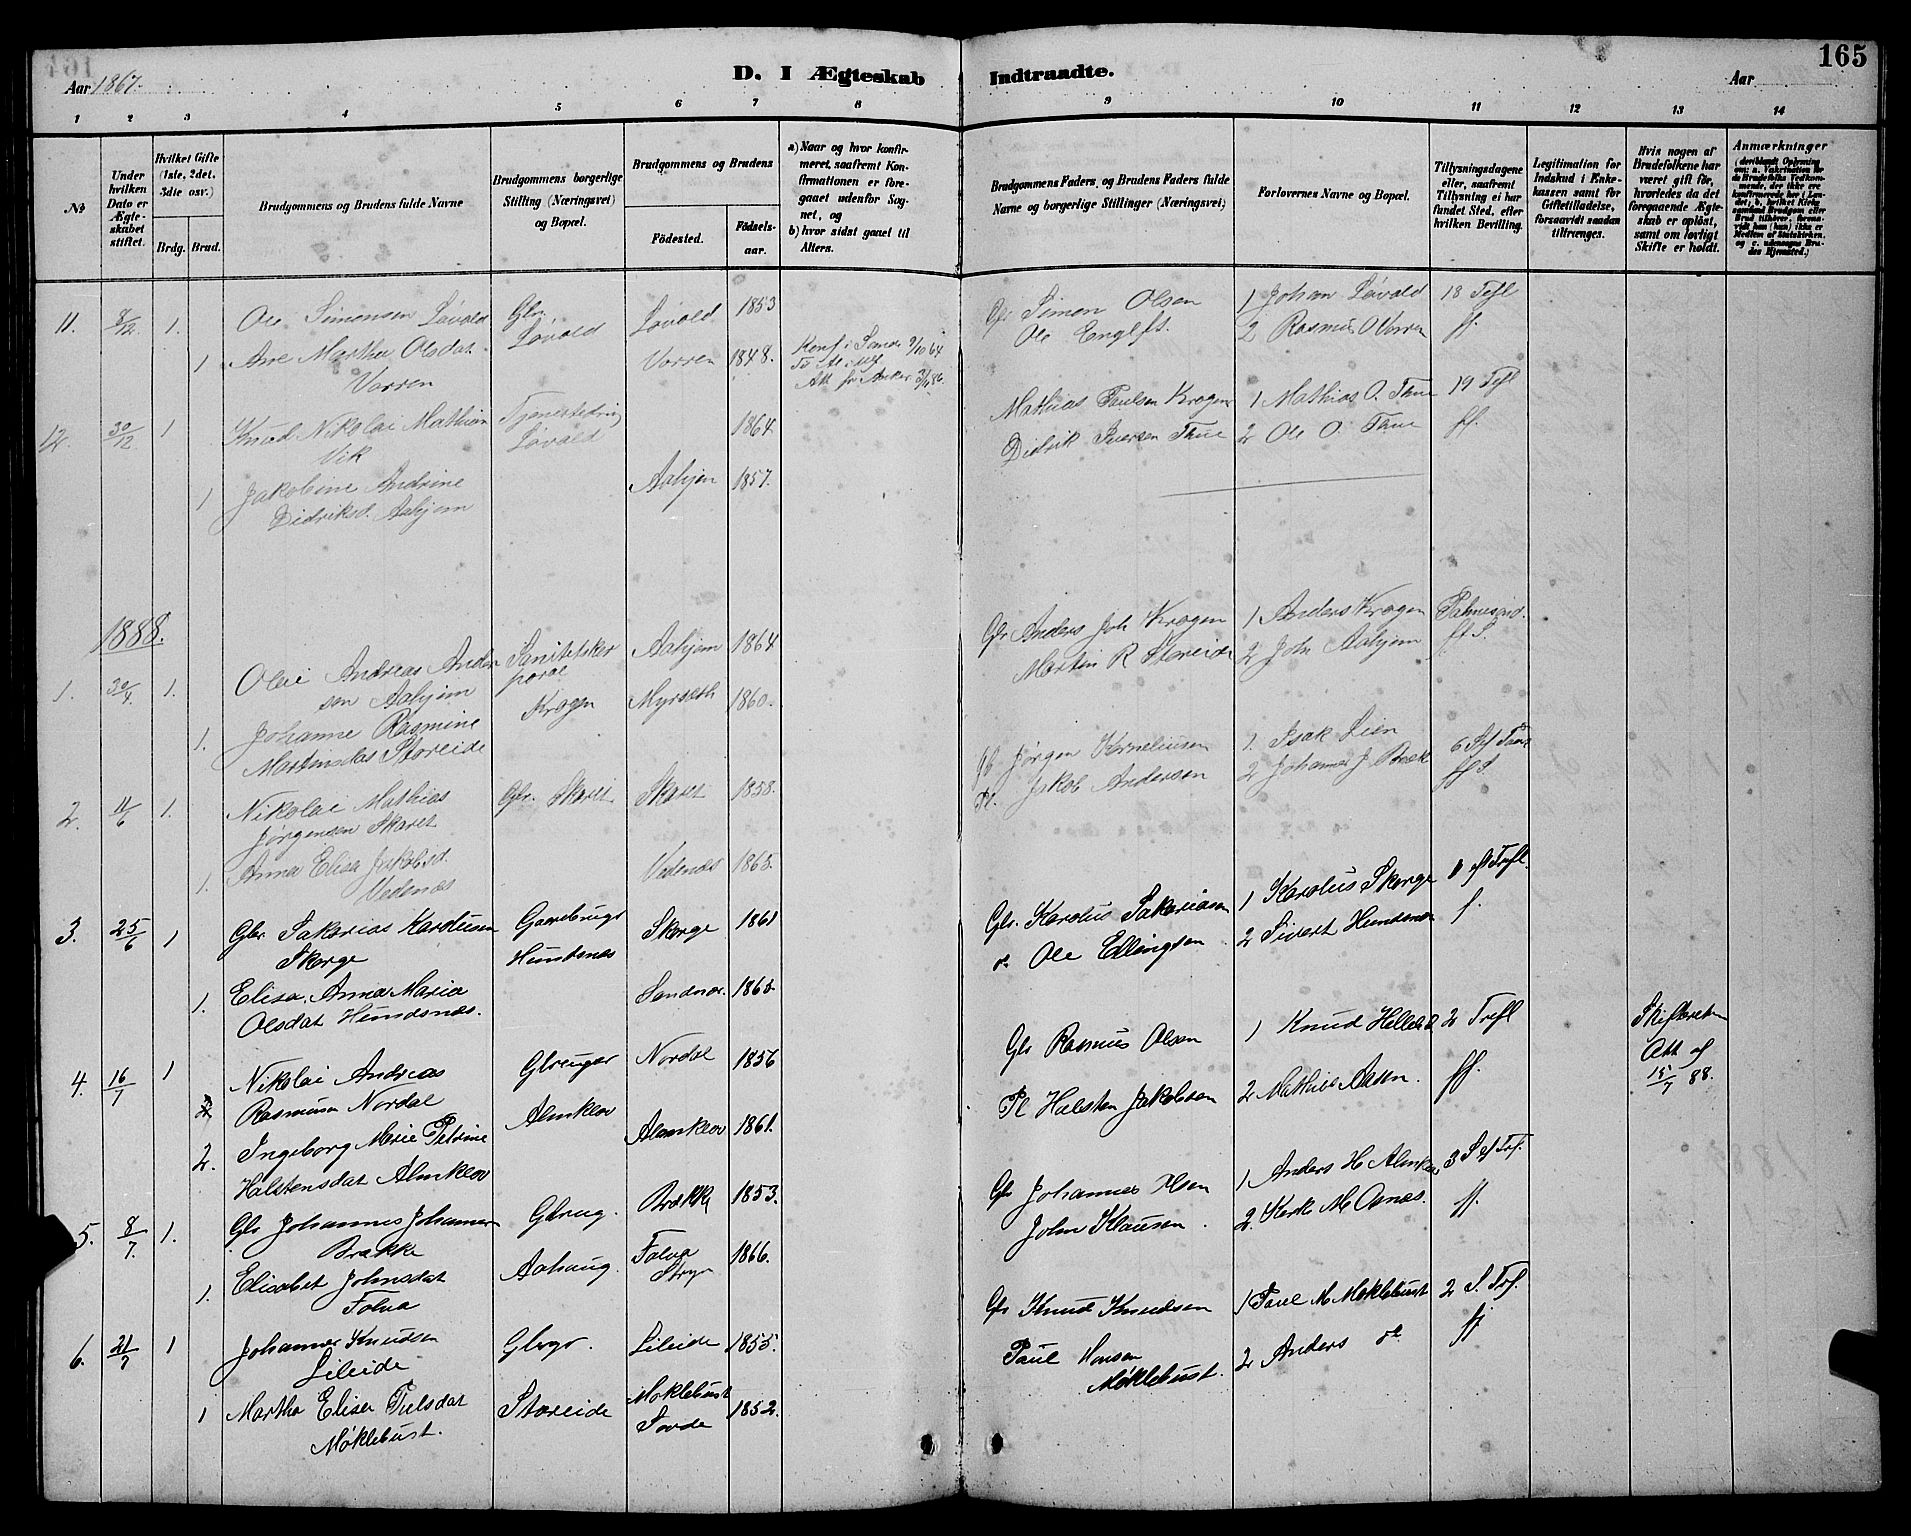 165
Aar 1867.
D. I Ægteskab Indtraadte.
Aar
1 2 3 4 5 6 7 8 9 10 11 12 13 14
№
Under hvilken Dato er Ægteskabet stiftet.
Hvilket Gifte (1ste, 2det, 3die osv.)
Brdg. Brud.
Brudgommens og Brudens fulde Navne
Brudgommens borgerlige Stilling (Næringsvei) og Bopæl.
Brudgommens og Brudens
Fødested.
Fødselsaar.
a) Naar og hvor konfirmeret, saafremt Konfirmationen er foregaaet udenfor Sognet, og
b) hvor sidst gaaet til Alters.
Brudgommens Faders, og Brudens Faders fulde Navne og borgerlige Stillinger (Næringsvei)
Forlovernes Navne og Bopæl.
Tillysningsdagene eller, saafremt Tillysning ei har fundet Sted, efter hvilken Bevilling.
Legitimation for Indskud i Enkekassen samt for Giftetilladelse, forsaavidt saadan tiltrænges.
Hvis nogen af Brudefolkene har været gift før, hvorledes da det foregaaende Ægteskab er opløst, samt om lovligt Skifte er holdt.
Anmærkninger
11. 8/12 1. Ole Simonsen Løvold Gbr. Løvold Løvold 1853 Gbr Simon Olsen 1 Johan Løvold 18 Tefl
1 Ane Martha Olsdat Vorren Vorren 1848. Konf i Sande 9/10 64 Ole Englft. 2 Rasmus O Vorren ff.
12. 30/12 1 Knud Nikolai Mathian Vik Tjenestedreng Løvold 1864 Mathias Paulsen Krogen 1 Mathias O. Thue 19 Tefl
1 Jakobine Andrine Didriksd. Aahjem Aahjem 1857. Didrik Iversen Thue 2 Ole O. Thue ff.
1888.
1. 30/4 1. Olai Andreas Andersen Aahjem Sanitetskorporal Krogen Aahjem 1864 Gbr Anders Joh Krogen 1 Anders Krogen Palmesønd.
1. Johanne Rasmine Martinsdat Storeide Myrseth 1860. Martin R Storeide 2 John Aahjem ff S.
2. 11/6 1. Nikolai Mathias Jørgensen Skaret Gbr. Skaret Skaret 1858. Jørgen Korneliusen 1. Isak Lien 6 S ef Paas
1. Anna Elisa Jakobsd. Vedenæs Vedenæs 1863. Pl. Jakob Andersen 2 Johannes J Bræk ff S
3. 25/6 1 Gbr. Sakarias Karolusen Skorge Gaardbruger Hundsnæs Skorge 1861 Gbr. Karolus Sakariasen 1 Karolus Skorge 1 ef Trefl
1. Elisa Anna Maria Olsdat Hundsnæs. Sandnæs. 1863. Ole Ellingsen 2 Sivert Hundsnæs f.
4. 16/7 1 Nikolai Andreas Rasmusen Nordal Gbruger Almklov Nordal 1856 Gbr Rasmus Olsen 1 Knud Helleb 2 Trefl Skifteretten
2. Ingeborg Marie Petrine Halstensdat Almklov Almklov 1861. Pl Halsten Jakobsen 2 Mathias Aasen. ff. Att af 15/7 88.
5. 8/7 1. Gbr Johannes Johannesen Brække Gbrug. Aahaug. Brække 1853. Gbr Johannes Olsen 1 Anders H Almklov 3 S ef Tref.
1. Elisabet Johnsdat Folva Folva Stryn 1866. John Klausen. 2. M Aanæs. ff.
6. 21/7 1 Johannes Knudsen Lileide Gbrgr. Storeide Lileide 1855. Gbr Knud Knudsen 1 Paul M Møklebust 2 S. Tref.
1 Martha Elisa Pulsdat Møklebust. Møklebust Søvde 1852. Paul Hansen Møklebust. 2 Anders do ff